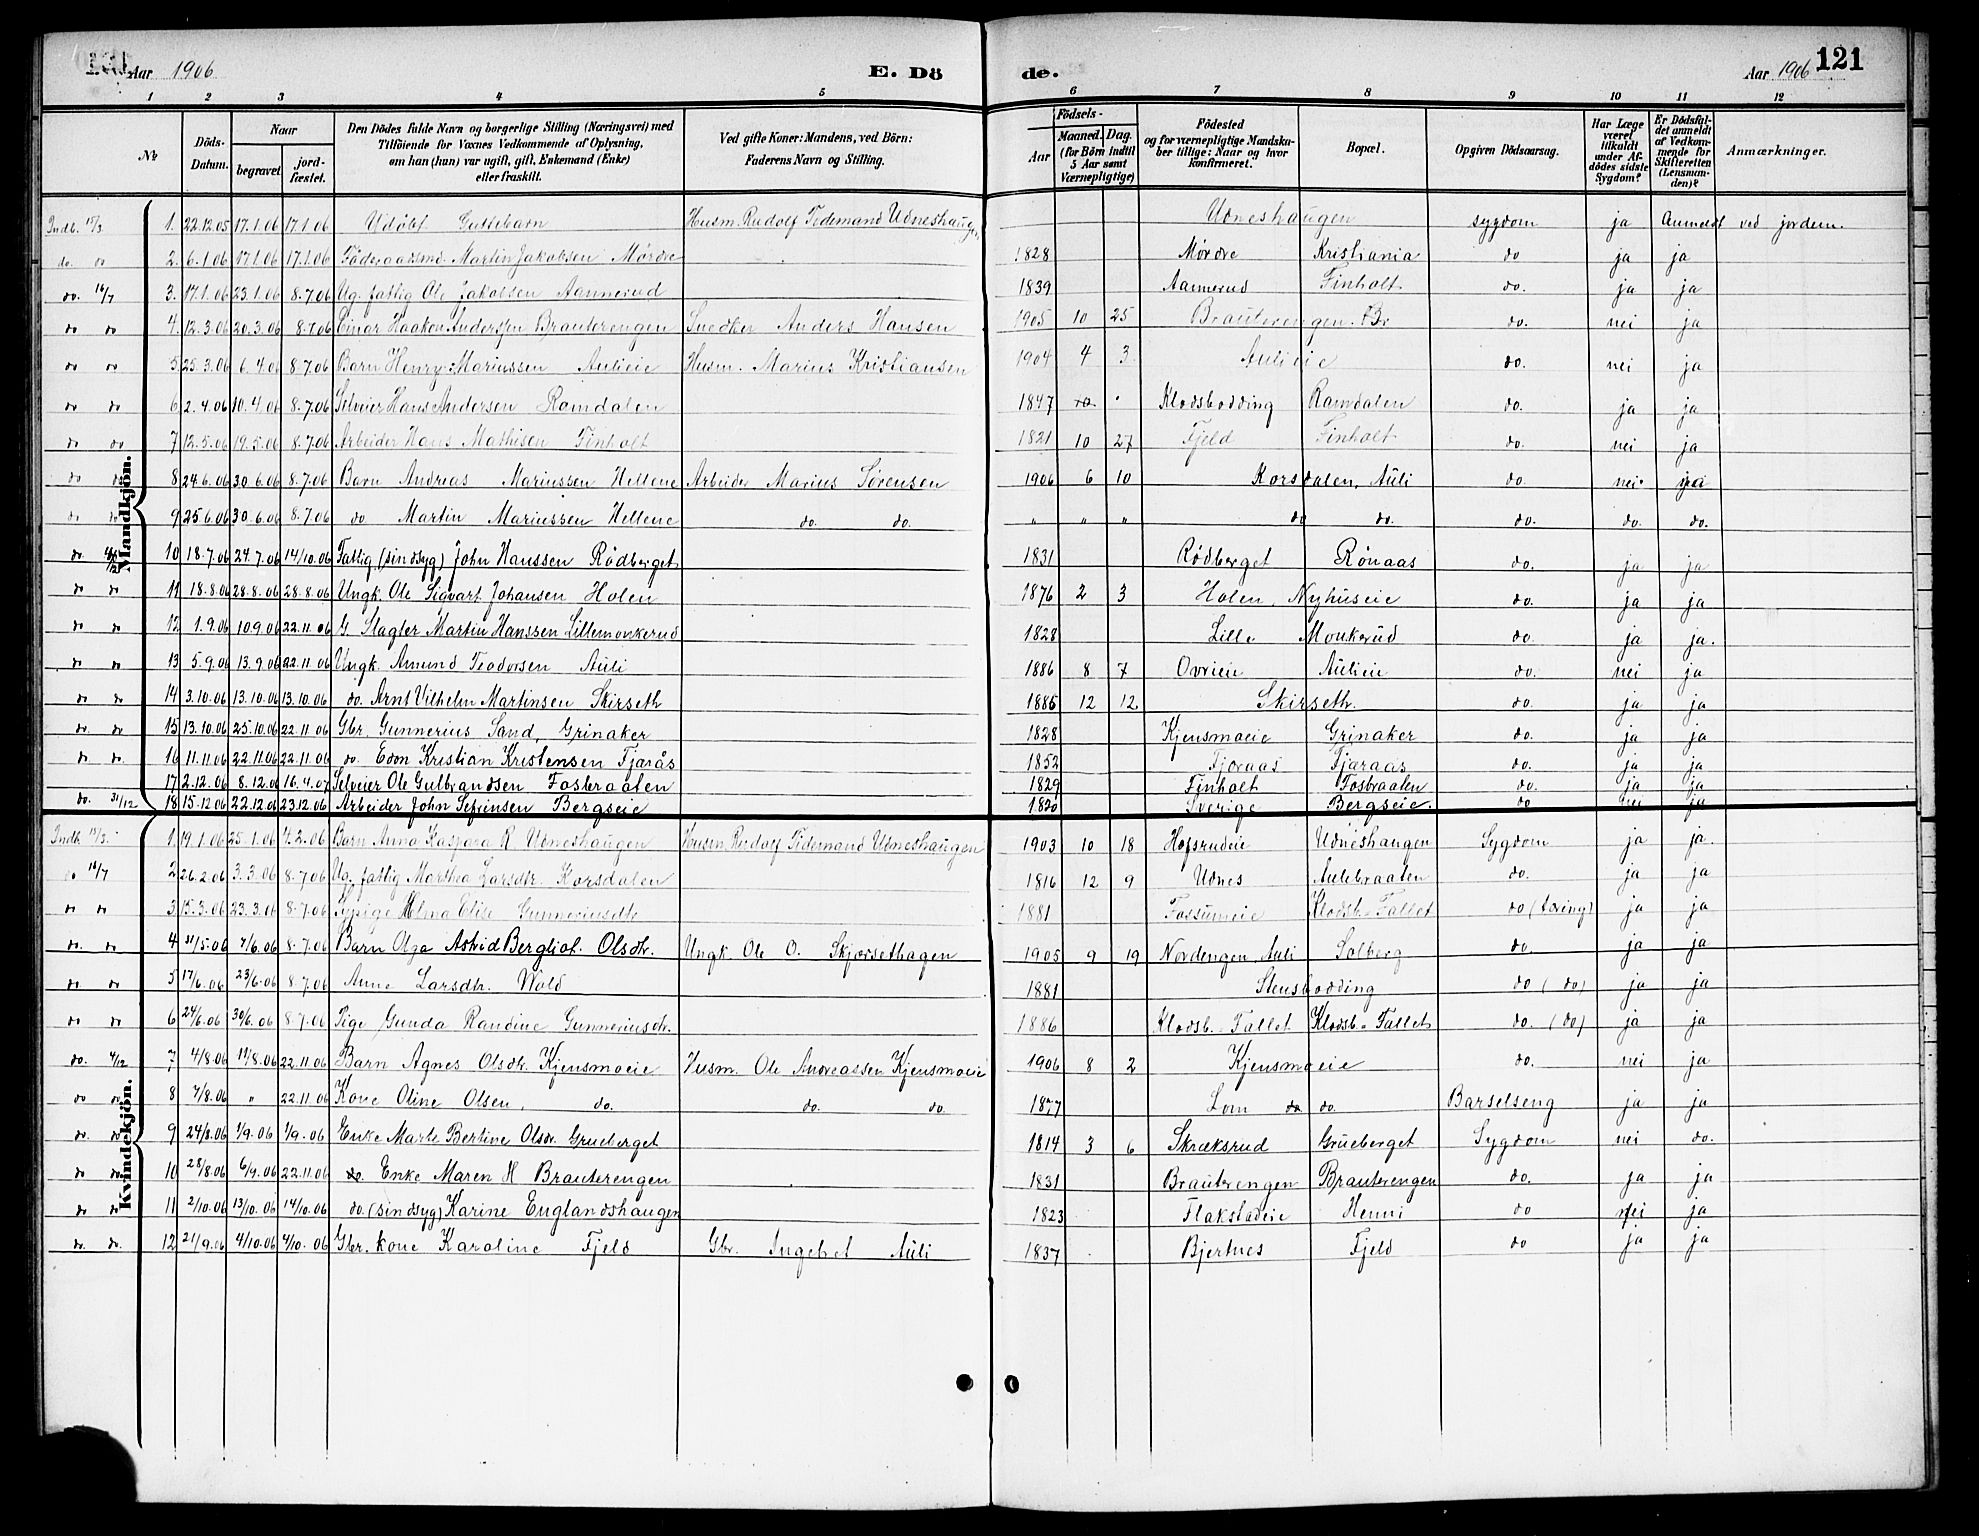 Aar 1906 E. Dö de. Aar 1906 121
1 2 3 4 5 6 7 8 9 10 11 12
Nr. Döds-Datum. Naar begravet jordfæstet. Den Dödes fulde Navn og borgerlige Stilling (Næringsvei) med Tilföiende for Voxnes Vedkommende af Oplysning, om han (hun) var ugift, gift, Enkemand (Enke) eller fraskilt. Ved gifte Koner: Mandens, ved Börn: Faderens Navn og Stilling. Födsels- Aar Maaned. Dag. (for Börn indtil 5 Aar samt Værnepligtige) Födested og for værnepligtige Mandskaber tillige: Naar og hvor konfirmeret. Bopæl. Opgiven Dödsaarsag. Har Læge været tilkaldt under Afdödes sidste Sygdom? Er Dödsfaldet anmeldt af Vedkommende for Skifteretten (Lensmanden)? Anmærkninger.
Mandkjön.
Indb. 15/3 1. 22.12.05 17.1.06 17.1.06 Udöbt Guttebarn Husm. Rudolf Tidemand Udneshaugen Udneshaugen sygdom ja Anmeldt ved jordem.
do. do 2. 6.1.06 17.1.06 17.1.06 Föderaadsmd Martin Jakobsen Mørdre 1828 Mørdre Kristiania do ja ja
do. 16/7 3. 17.1.06 23.1.06 8.7.06 Ug. fattig Ole Jakobsen Aannerud 1839 Aannerud Finholt do. ja ja
do do 4. 12.3.06 20.3.06 8.7.06 Einar Haakon Anderssen Brauterengen Snedker Anders Hansen 1905 10 25 Brauterengen. Br do. nei ja
do do 5 25.3.06 6.4.06 8.7.06 Barn Henry Mariussen Aulieie Husm. Marius Kristiansen 1904 4 3 Aulieie do. nei ja
do do 6 2.4.06 10.4.06 8.7.06 Selveier Hans Andersen Ramdalen 1847 Klodsbodding Ramdalen do. ja ja
do do 7 12.5.06 19.5.06 8.7.06 Arbeider Hans Mathisen Finholt 1821 10 27 Fjeld Finholt do. nei ja
do do 8 24.6.06 30.6.06 8.7.06 Barn Andreas Mariussen Hellene Arbeider Marius Sørensen 1906 6 10 Korsdalen, Auli do. nei ja
do do 9 25.6.06 30.6.06 8.7.06 do Martin Mariussen Hellene do. do. " " " do do. do. do. do.
do. 4/12 10 18.7.06 24.7.06 14/10.06 Fattig (sindsyg) John Hanssen Rødberget 1831 Rødberget Rønaas do. ja ja
do do 11 18.8.06 28.8.06 28.8.06 Ungk. Ole Sigvart Johansen Holen 1876 2 3 Holen, Nyhuseie do. ja ja
do do 12 1.9.06 10.9.06 22.11.06 G. Slagter Martin Hanssen Lillemonkerud 1828 Lille Monkerud do. ja ja.
do do 13 5.9.06 13.9.06 22.11.06 Ungk. Amund Teodorsen Auli 1886 8 7 Ovrieie Aulieie do. nei ja
do do 14 3.10.06 13.10.06 13.10.06 do. Arnt Vilhelm Martinsen Skirseth 1885 12 12 Skirseth. do. ja ja
do do 15 13.10.06 25.10.06 22.11.06 Gbr. Gunnerius Sand, Grinaker 1828 Kjensmoeie Grinaker do. ja ja
do do. 16 11.11.06 22.11.06 22.11.06 do. Edon Kristian Kristensen Fjarås 1852 Fjoraas Fjaraas do. ja ja
17 2.12.06 8.12.06 16.4.07 Selveier Ole Gulbrandsen Fosbraaten 1829 Finholt Fosbraaten do. ja ja
do. 31/12 18 15.12.06 22.12.06 23.12.06 Arbeider John Sefrinsen Bergseie 1820 Sverige Bergseie. do nei ja
Kvindekjön.
Indb. 15/3. 1. 19.1.06 25.1.06 4.2.06 Barn Anna Kaspara R Udneshaugen Husm Rudolf Tidemand Udneshaugen 1903 10 18 Hofsrudeie Udneshaugen Sygdom ja ja.
do 16/7 2 26.2.06 3.3.06 8.7.06 Ug. fattig Marthea Larsdtr. Korsdalen 1816 12 9 Udnes Aulebraaten do. ja ja
do do 3 15.3.06 23.3.06 8.7.06 Sypige Elise Gunneriusdtr 1881 Fossumeie Klodsb. Fallet do (tæring) ja ja
do. do 4 31/5.06 7/6.06 8.7.06 Barn Olga Astrid Bergliot. Olsdtr. Ungk. Ole O. Skjørsethagen 1905 9 19 Nordengen Auli Solberg do. ja ja
do do 5 17/6.06 23/6.06 8.7.06 Anne Larsdtr. Wold 1881 Stensbodding do (do) ja ja
do do 6 24/6.06 30/6.06 8.7.06 Pige Gunda Randine Gunneriusdtr. 1886 Klodsb. Fallet Klodsb. Fallet do. (do) ja ja
do. 4/12 7 4/8.06 11/8.06 22.11.06 Barn Agnes Olsdtr. Kjensmoeie Husm. Ole Andreassen Kjensmoeie 1906 8 2 Kjensmoeie do. nei ja
do do 8 7/8.06 " 22.11.06 Kone Oline Olsen, do. do. do. 1877 Lom do do. Barselseng ja ja
do. do 9 24/8.06 1/9.06 1/9.06 Enke Marte Bertine Olsdr. Grueberget 1814 3 6 Skræksrud Grueberget Sygdom nei do.
do do 10 28/8.06 6/9.06 22.11.06 do. Enke Maren H Brauterengen 1831 Brauterengen Brauterengen do. ja ja
do do 11 2/10.06 13/10.06 14/10.06 do. (sindsyg) Karine Englandshaugen 1823 Flakstadeie Henni do nei ja
do. do. 12 21/9.06 4/10.06 4/10.06 Gbr. kone Karoline Fjeld Gbr. Ingebret Auli 1837 Bjertnes Fjeld do ja ja